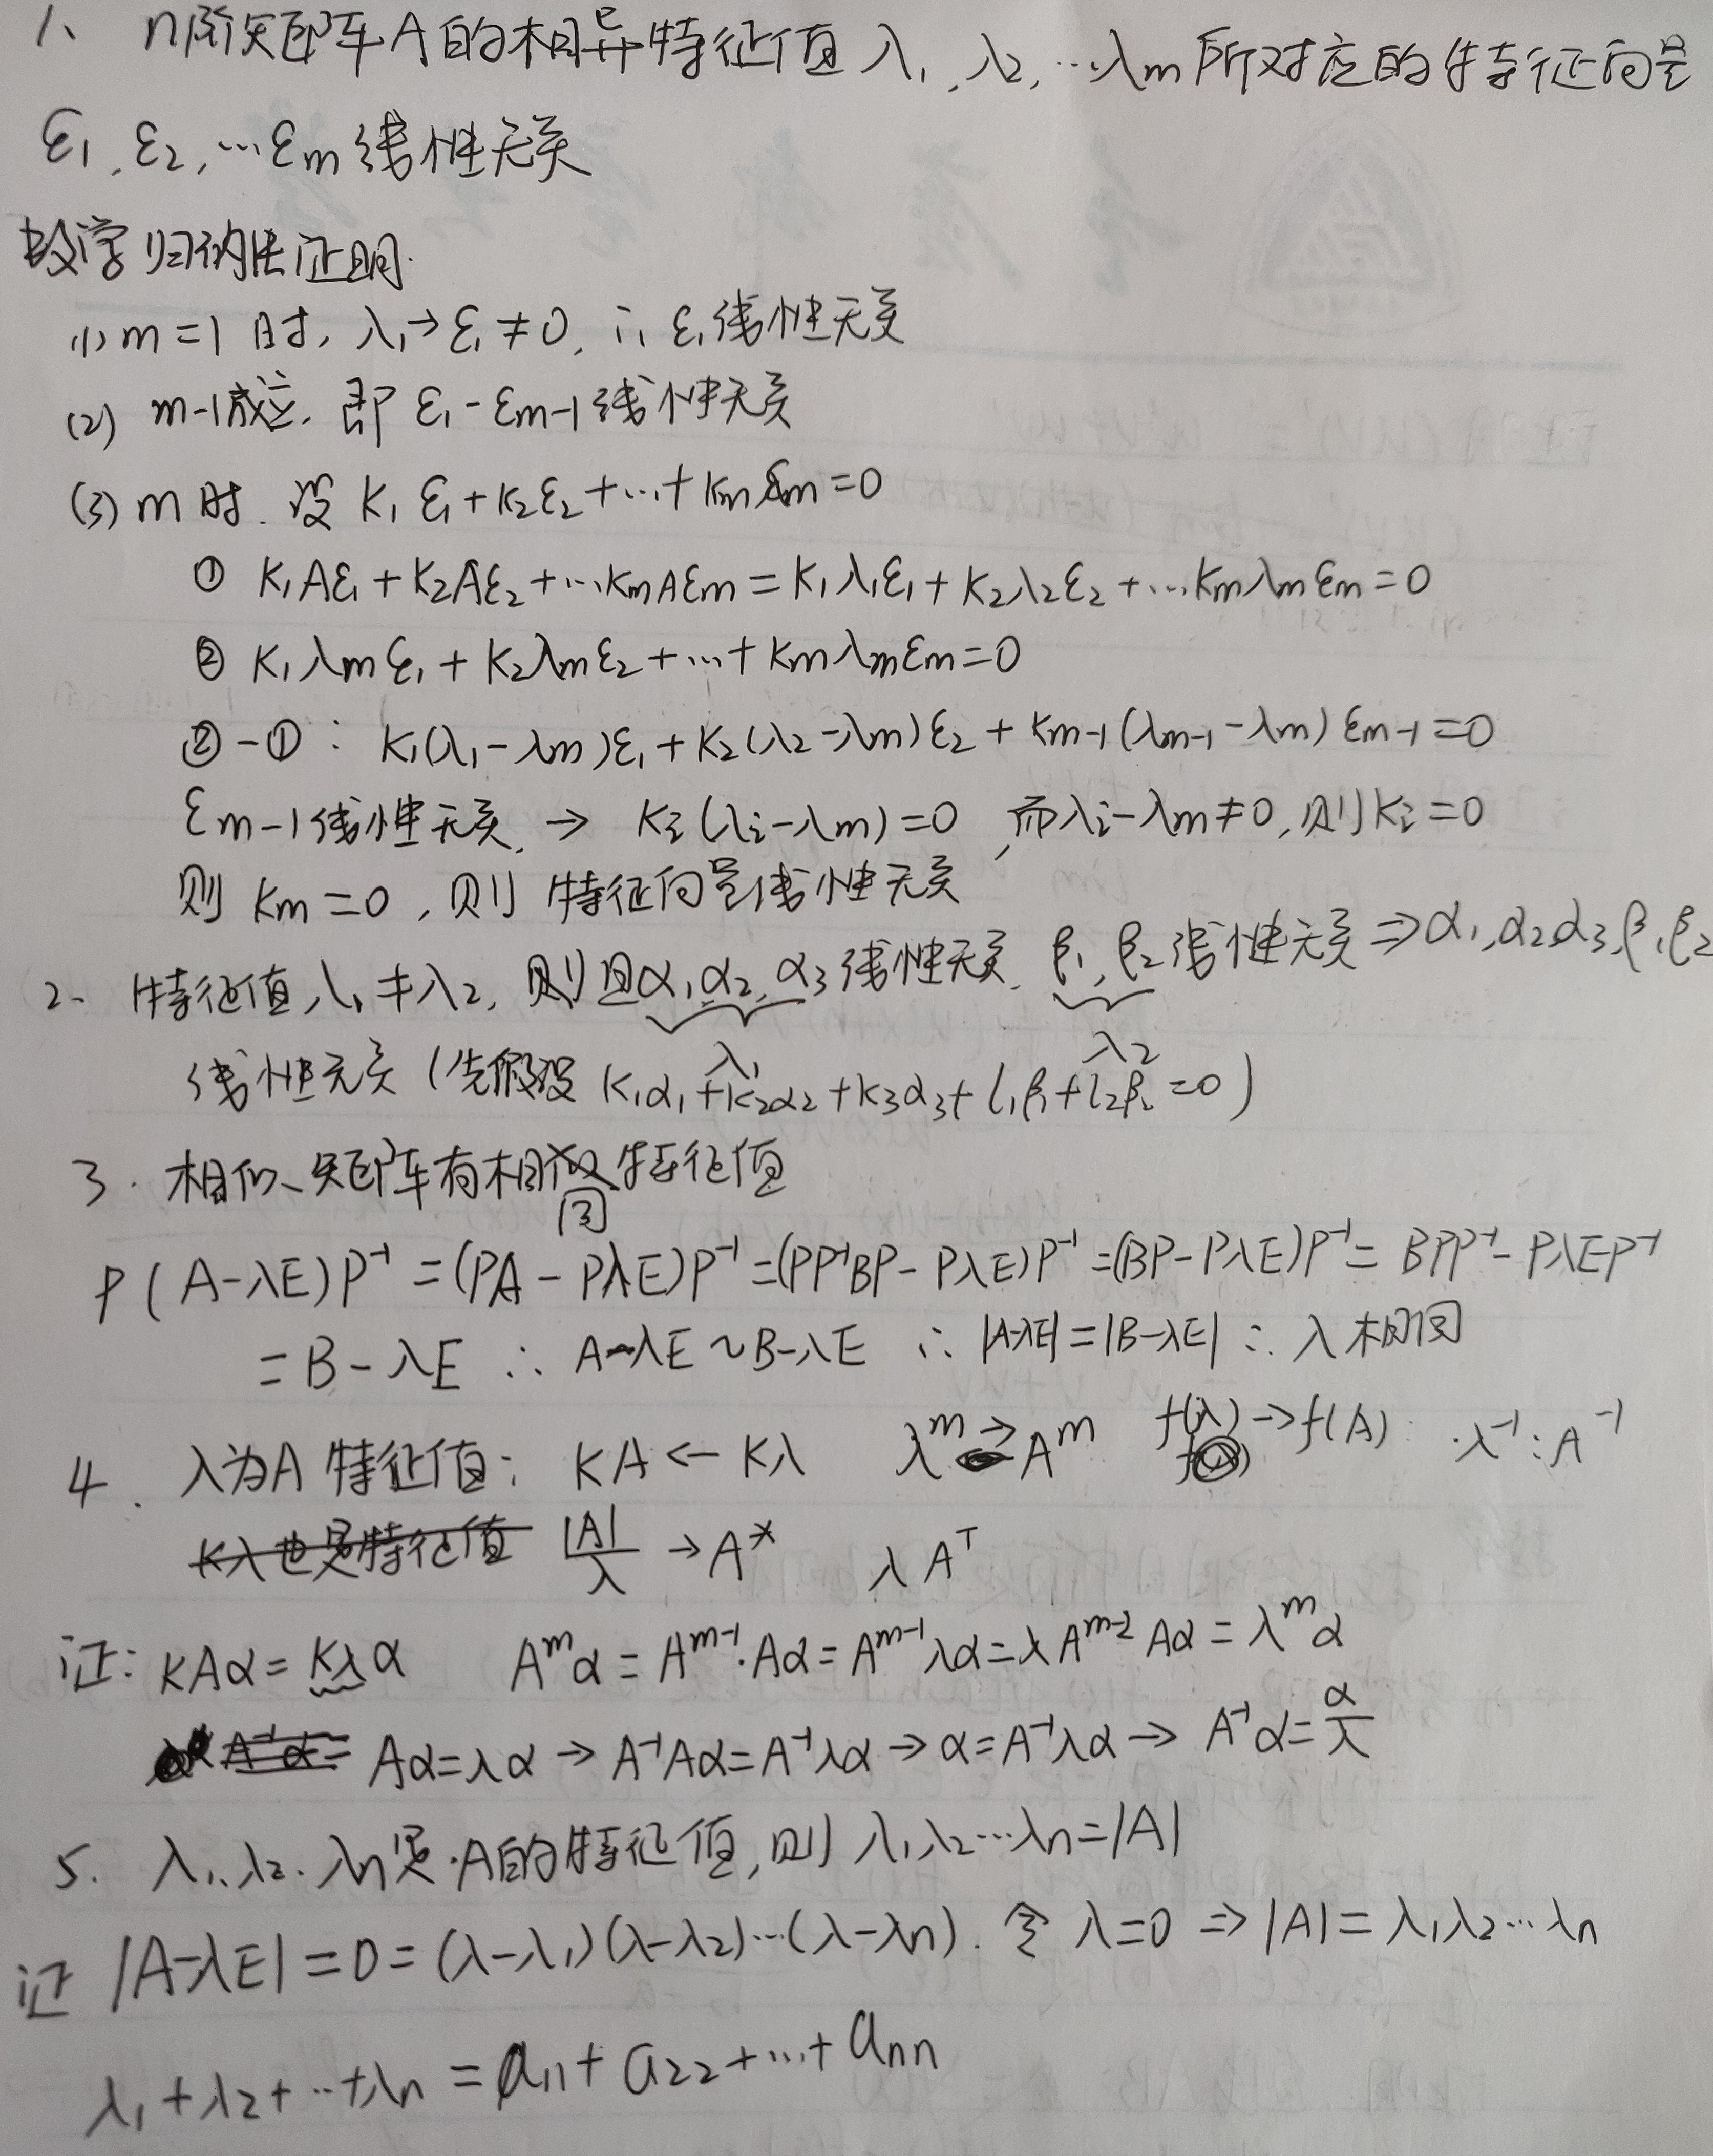 1、n阶矩阵A的相异特征值 λ₁,λ₂,…λm 所对应的特征向量
ε₁,ε₂,…εm 线性无关
数学归纳法证明.
(1) m=1 时, λ₁→ε₁≠0, ∴ ε₁线性无关
(2) m-1成立. 即 ε₁-εm-1 线性无关
(3) m 时. 设 k₁ε₁+k₂ε₂+…+kmεm=0
① k₁Aε₁+k₂Aε₂+…kmAεm=k₁λ₁ε₁+k₂λ₂ε₂+…kmλmεm=0
② k₁λmε₁+k₂λmε₂+…+kmλmεm=0
②-①: k₁(λ₁-λm)ε₁+k₂(λ₂-λm)ε₂+km-1(λm-1-λm)εm-1=0
εm-1线性无关, → ki(λi-λm)=0, 而λi-λm≠0, 则ki=0
则 km=0, 则 特征向量线性无关
2、特征值 λ₁≠λ₂, 则且α₁,α₂,α₃线性无关. β₁,β₂线性无关⇒α₁,α₂,α₃,β₁,β₂
λ₁ λ₂
线性无关 (先假设 k₁α₁+k₂α₂+k₃α₃+l₁β₁+l₂β₂=0)
3. 相似矩阵有相同特征值
P(A-λE)P⁻¹=(PA-PλE)P⁻¹=(PP⁻¹BP-PλE)P⁻¹=(BP-PλE)P⁻¹=BPP⁻¹-PλEP⁻¹
=B-λE ∴ A-λE~B-λE ∴ |A-λE|=|B-λE| ∴ λ相同
4. λ为A特征值: kA←kλ λᵐ→Aᵐ f(λ)→f(A) λ⁻¹:A⁻¹
kλ也是特征值 |A|/λ→A* λ Aᵀ
证: kAα=kλα Aᵐα=Aᵐ⁻¹·Aα=Aᵐ⁻¹λα=λAᵐ⁻²Aα=λᵐα
A⁻¹α= Aα=λα→A⁻¹Aα=A⁻¹λα→α=A⁻¹λα→A⁻¹α=α/λ
5. λ₁,λ₂.λn是A的特征值,则 λ₁λ₂…λn=|A|
证 |A-λE|=0=(λ-λ₁)(λ-λ₂)…(λ-λn). 令 λ=0 ⇒|A|=λ₁λ₂…λn
λ₁+λ₂+…+λn=a₁₁+a₂₂+…+ann